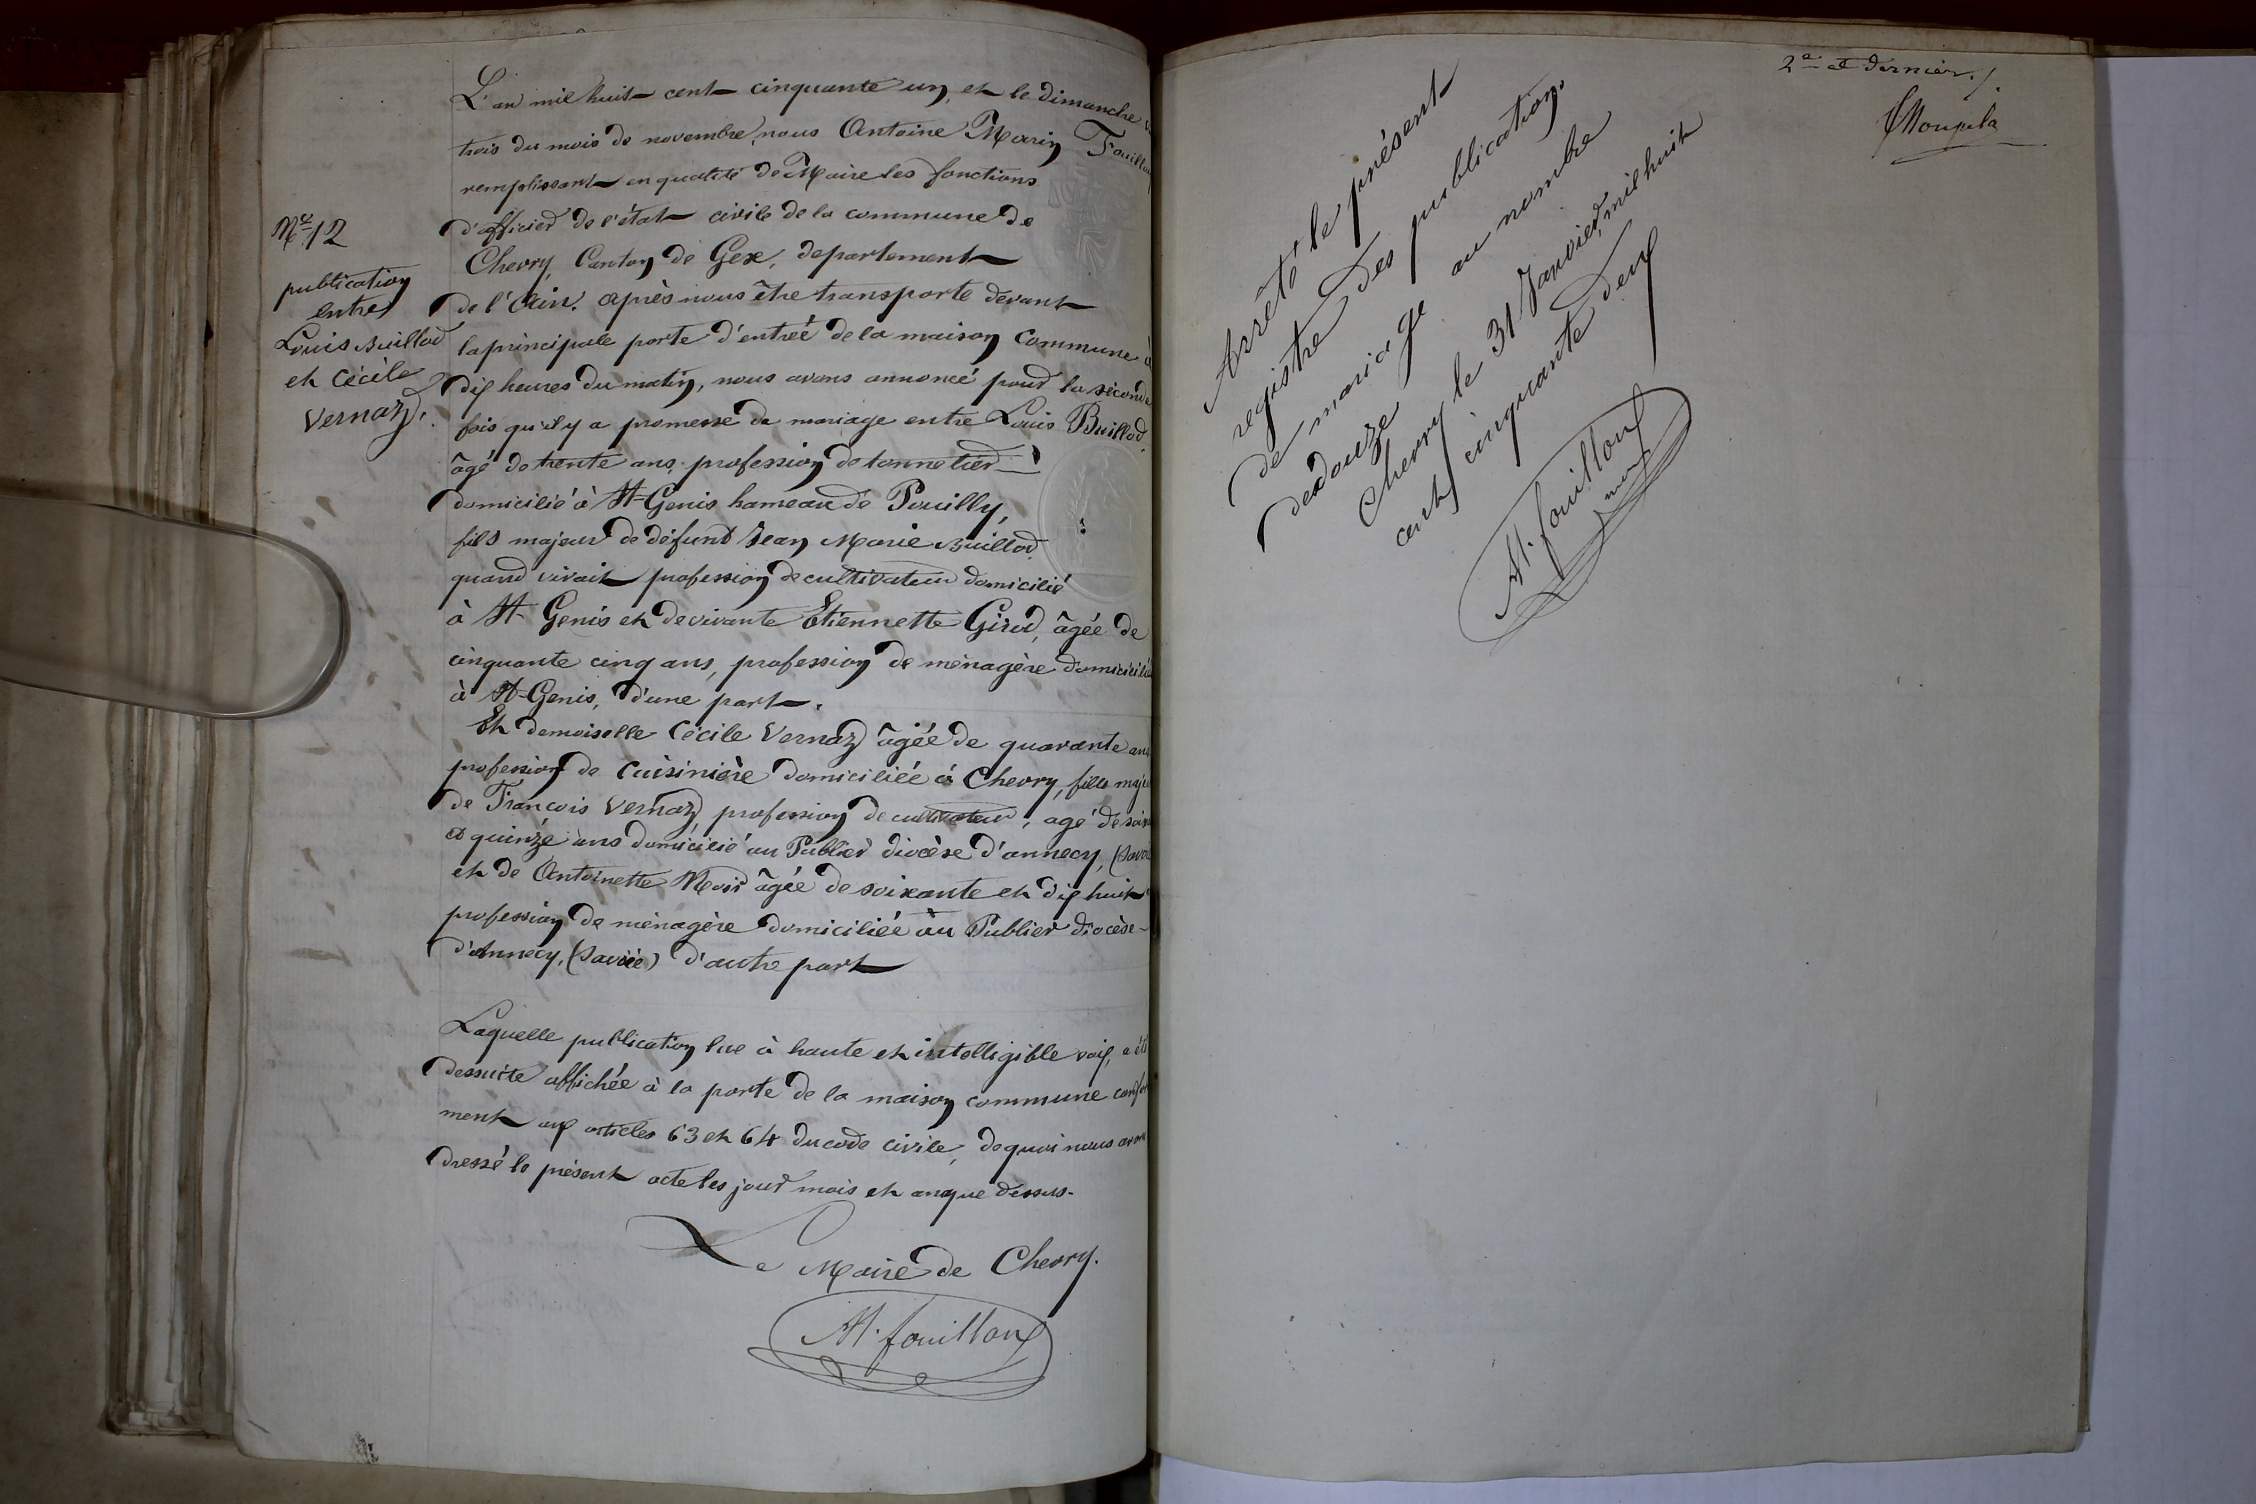 L'an mil huit cent cinquante un, et le dimanche
trois du mois de novembre, nous Antoine Marin Fouilloux
remplissant en qualité de Maire les fonctions
d'officier de l'état civile de la commune de
Chevry, Canton de Gex, departement
de l'Ain. après nous être transporte devant
la principale porte d'entreé de la maison Commune à
dix heures du matin, nous avons annoncé pour la seconde
fois qu'il y a promesse de mariage entre Louis Buillod
âgé de trente ans profession de tonnelier
domicilié à St Genis hameau de Pouilly,
fils majeur de défunt Jean Marie Buillod
quand vivait profession de cultivateur domicilié
à St Genis et de vivante Etiennette Girod, âgée de
cinquante cinq ans, profession de ménagère domiciliée
à St Genis, d'une part.
Et demoiselle Cécile Vernaz âgée de quarante ans
profession de Cuisinière domiciliée à Chevry, fille maje
de François Vernaz profession de cultivateur, agé de soix
et quinze ans domicilié au Publier diocèse d'annecy, (Savoie
et de Antoinette âgée de soixante et dix huit
profession de ménagère domiciliée au Publier diocèse
d'Annecy, (Savoie) d'autre part
Laquelle publication lue à haute et intelligible voix, a été
dessuite affichée à la porte de la maison commune confor
ment aux articles 63 et 64 du code civile, de quoi nous avons
dressé le présent acte les jour mois et an que dessus.
Le Maire de Chevry.
At. fouilloux
No 12
publication
entre
Louis Buillod
et Cécile
Vernaz.
2e et dernier.
Arrêté le présent
registre des publications
de mariage au nombre
de douze
Chevry le 31 Janvier mil huit
cent cinquante deux
At. fouilloux